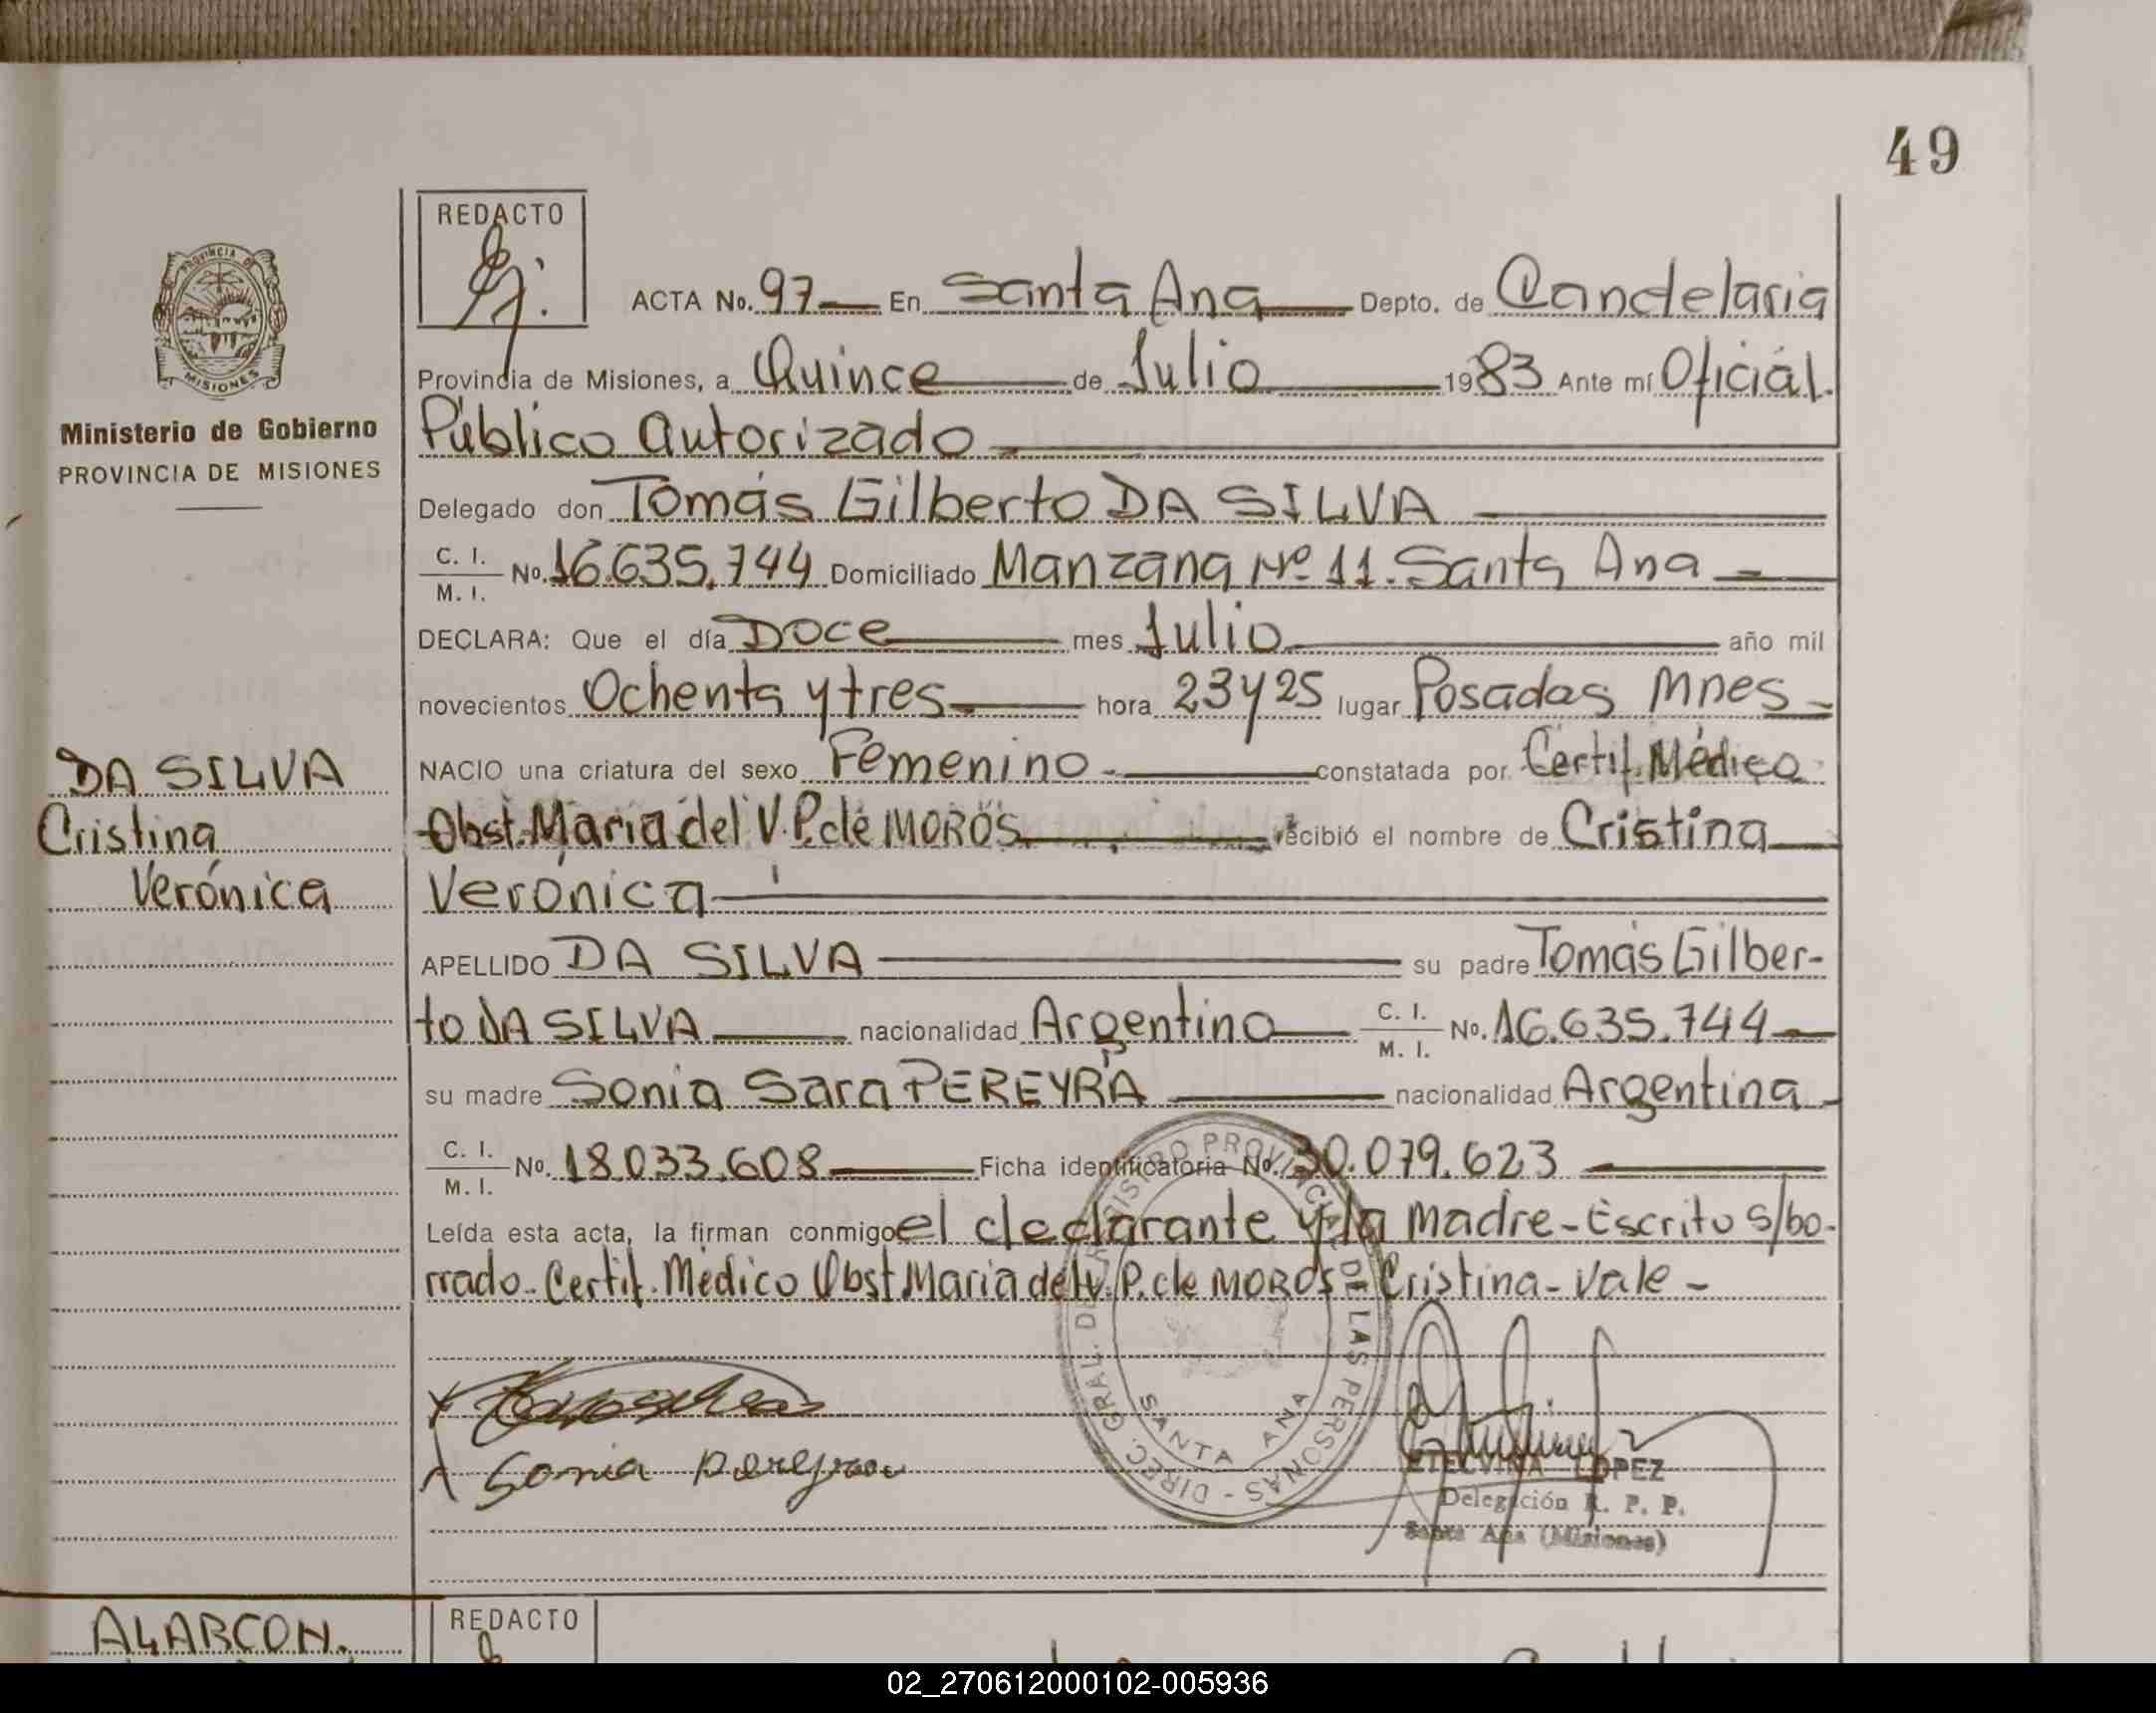 49
REDACTO
PROVINCIA DE
MISIONES
ACTA No. 97 En Santa Ana Depto. de Candelaria
Provincia de Misiones, a Quince de Julio 1983 Ante mí Oficial
Público Autorizado
Ministerio de Gobierno
PROVINCIA DE MISIONES
Delegado don Tomás Gilberto DA SILVA
C. I.
M. I.
No. 16.635.744 Domiciliado Manzana Nº 11. Santa Ana
DECLARA: Que el día Doce mes Julio año mil
novecientos Ochenta y tres hora 23 y 25 lugar Posadas Mnes
NACIO una criatura del sexo Femenino constatada por Certif. Médico
Obst. Maria del V. P. de MOROS recibió el nombre de Cristina
Verónica
DA SILVA
Cristina
Verónica
APELLIDO DA SILVA su padre Tomás Gilber-
to DA SILVA nacionalidad Argentino C. I.
M. I.
No. 16.635.744
su madre Sonia Sara PEREYRA nacionalidad Argentina
C. I.
M. I.
No. 18.033.608 Ficha identificatoria No. 30.079.623
Leída esta acta, la firman conmigo el declarante y la madre - Escrito s/bo-
rrado - Certif. Médico Obst Maria del V. P. de MOROS - Cristina - Vale -
DIREC. GRAL. DEL REGISTRO PROVINCIAL DE LAS PERSONAS
SANTA ANA
Sonia pereyra
LOPEZ
Delegación R. P. P.
Santa Ana (Misiones)
ALARCON.
REDACTO
02_270612000102-005936